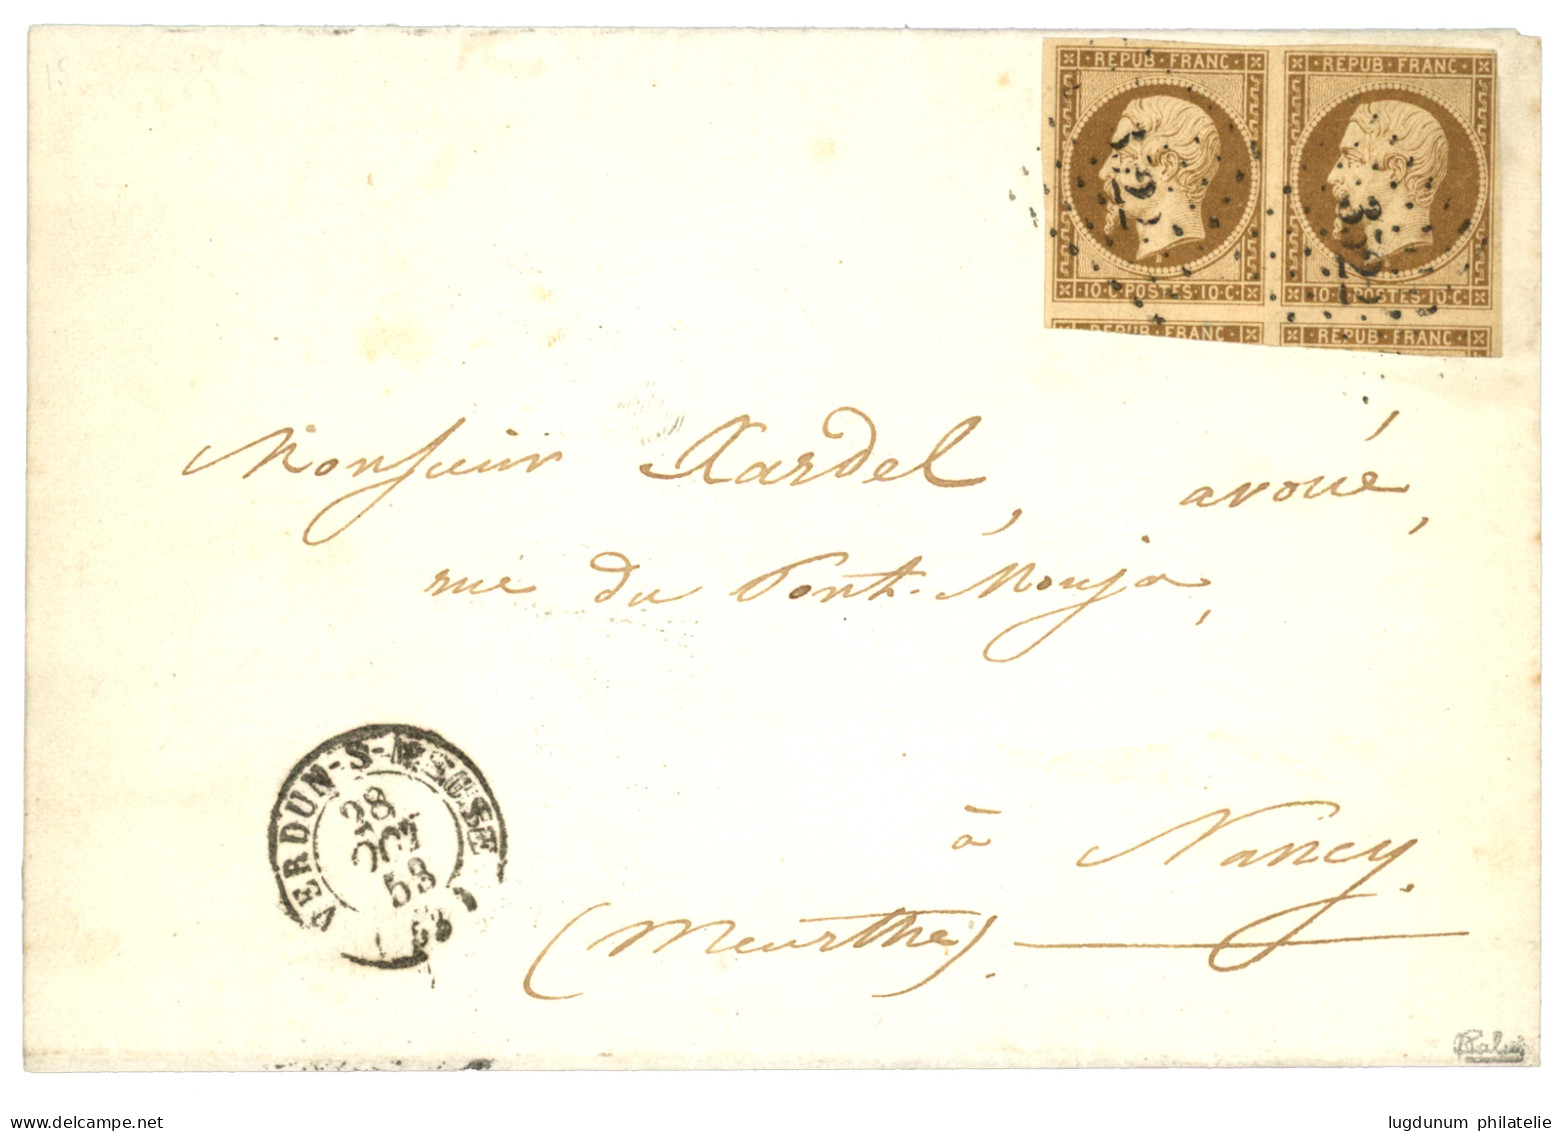 REPUB FRANC REPUB FRANC
10·C·POSTES·10·C 10·C·POSTES·10·C
REPUB FRANC REPUB FRANC
Monsieur Xardel, avoué,
rue du Pont-Mouja,
à Nancy.
(Meurthe).
VERDUN-S-MEUSE
28
OCT
53
delcampe.net
lugdunum philatelie